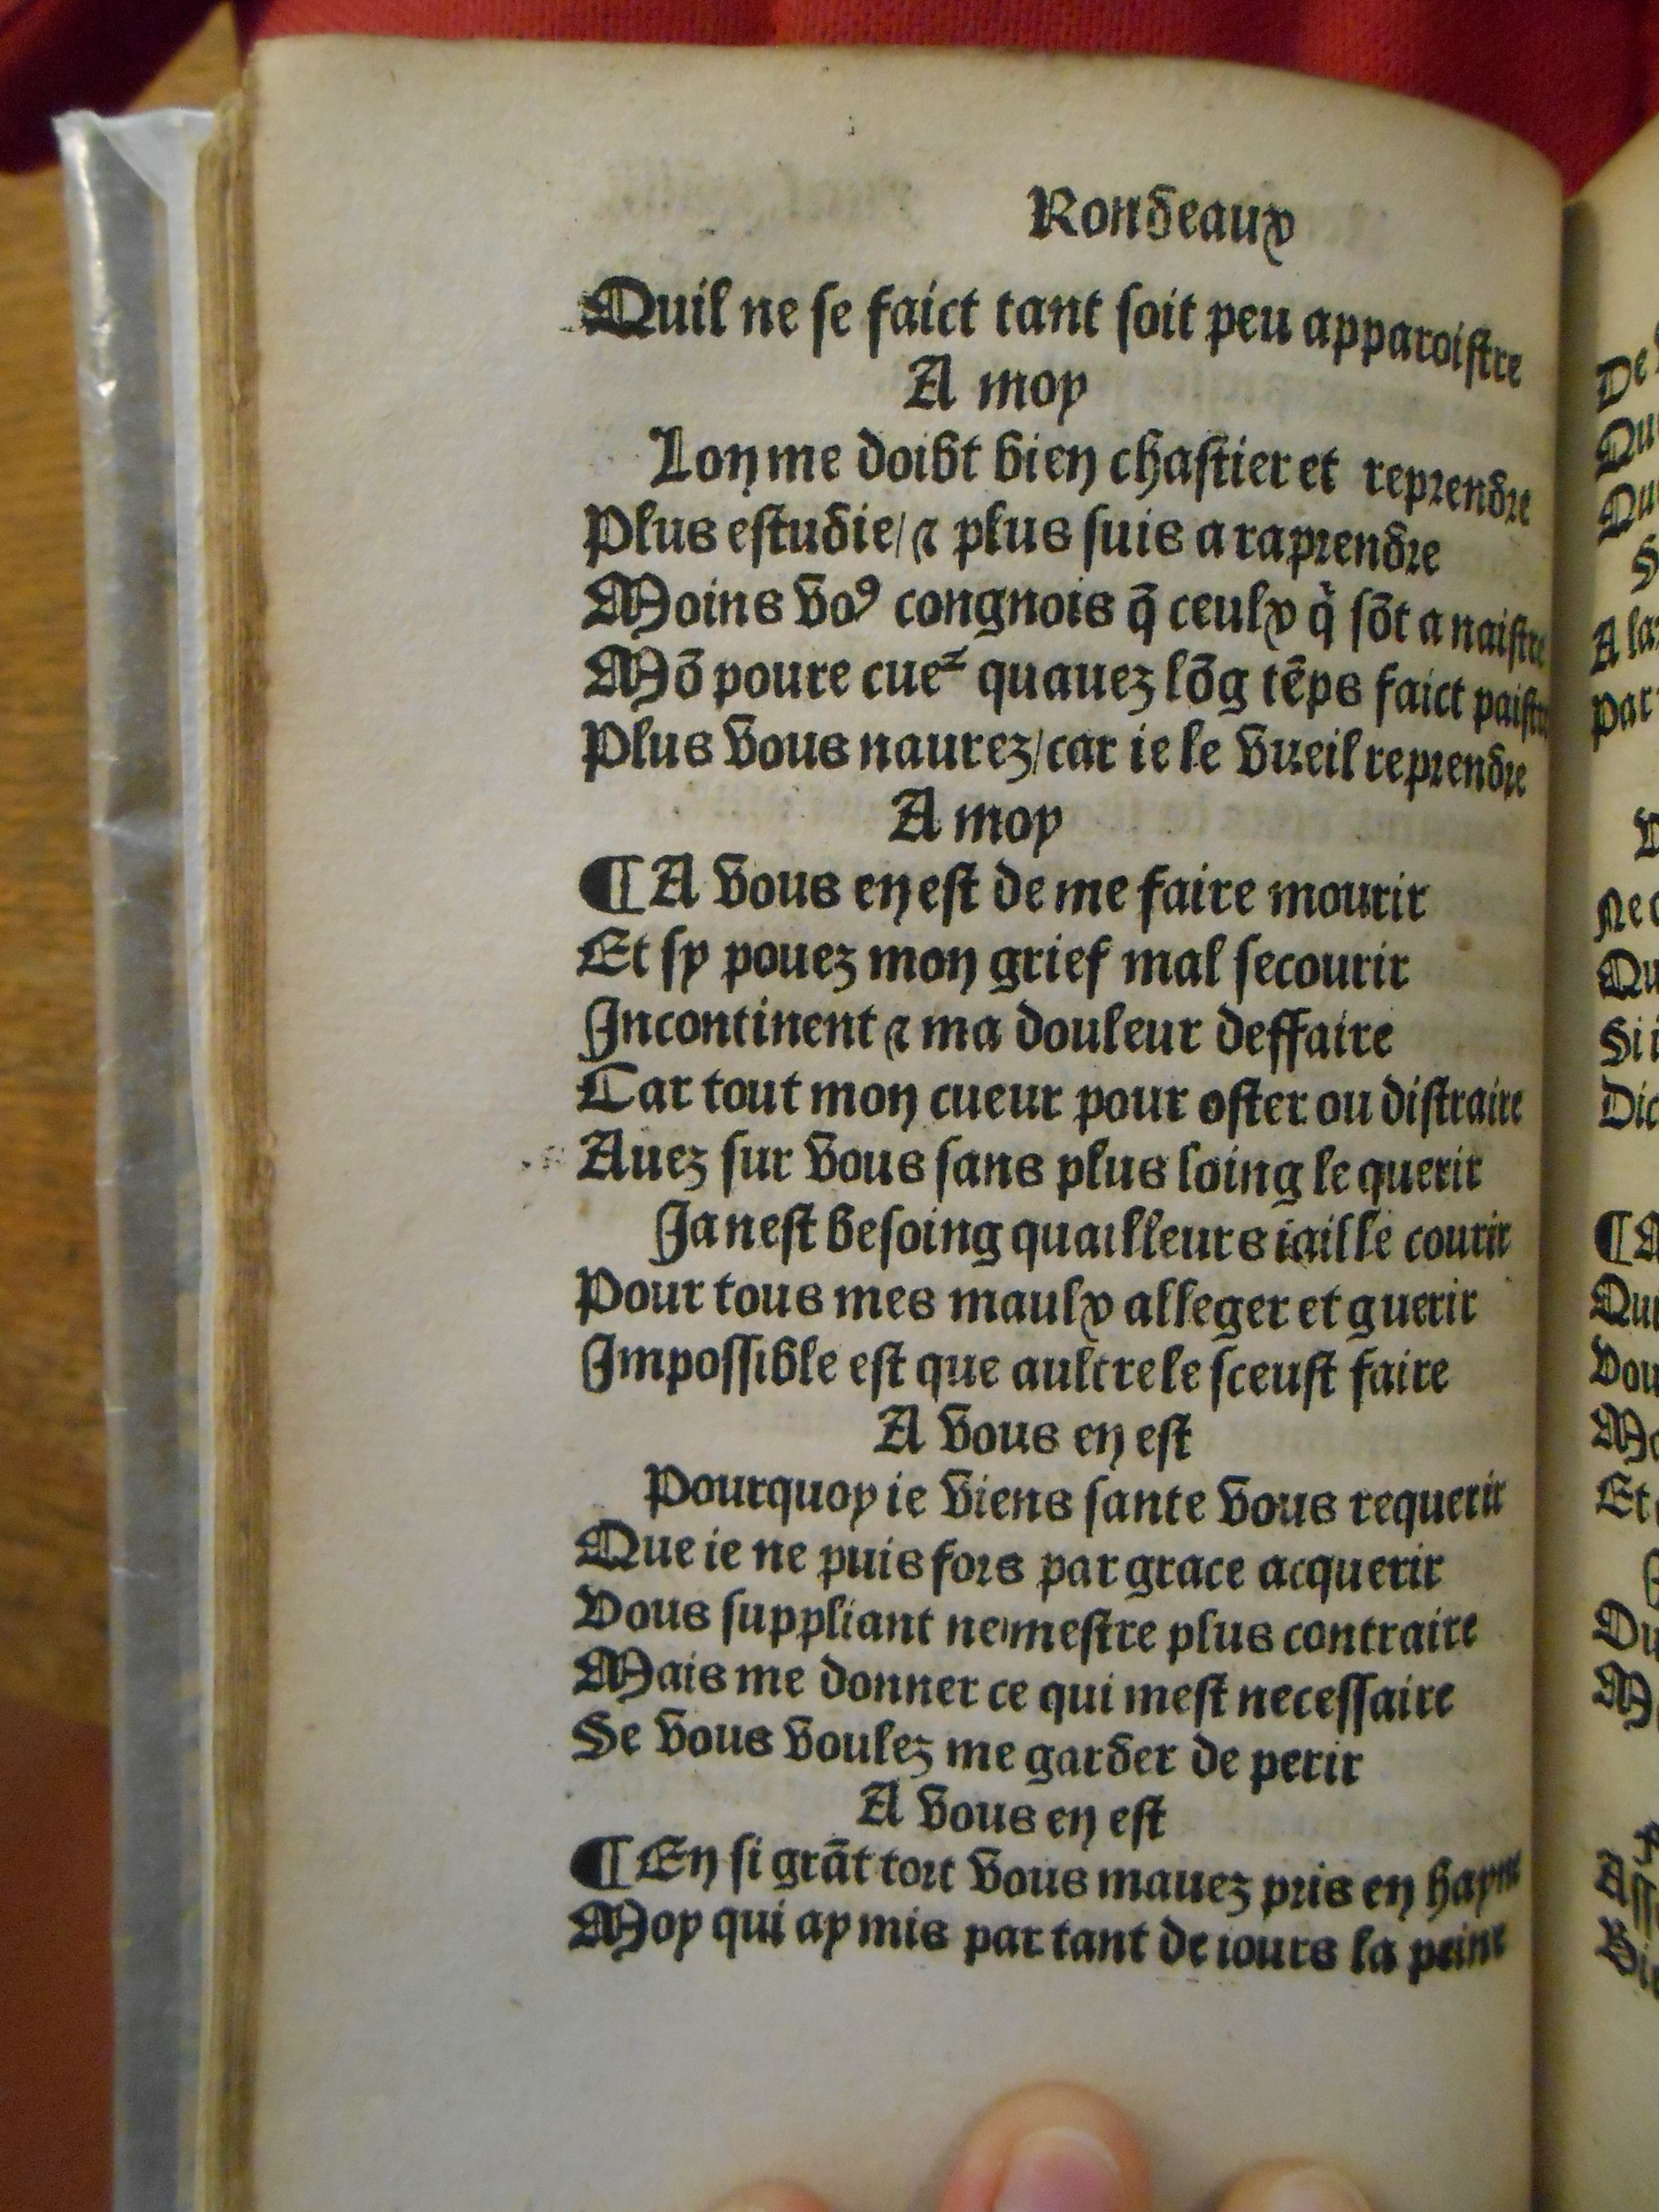 Rondeaux
Quil ne se faict tant soit peu apparoistre
A moy
Lon me doibt bien chastier et reprendre
Plus estudie/⁊ plus suis a raprendre
Moins voꝰ congnois q̄ ceulx q̇ sōt a naistre
Mō poure cueᷣ quauez lōg tēps faict paistre
Plus vous naurez/car ie le vueil reprendre
A moy
¶A vous en est de me faire mourir
Et sy pouez mon grief mal secourir
Incontinent ⁊ ma douleur deffaire
Car tout mon cueur pour oster ou distraire
Auez sur vous sans plus loing le querir
Ja nest besoing quailleurs iaille courir
Pour tous mes maulx alleger et guerir
Impossible est que aultre le sceust faire
A vous en est
Pourquoy ie viens sante vous requerir
Que ie ne puis fors par grace acquerir
Vous suppliant ne mestre plus contraire
Mais me donner ce qui mest necessaire
Se vous voulez me garder de perir
A vous en est
¶En si grāt tort vous mauez pris en hayne
Moy qui ay mis par tant de iours la peine
De
Qu
Qu
S
A la
Par
Ne
Qu
Si i
Dic
¶
Qu
Vou
Mo
Et
Du
M
Ass
Bie